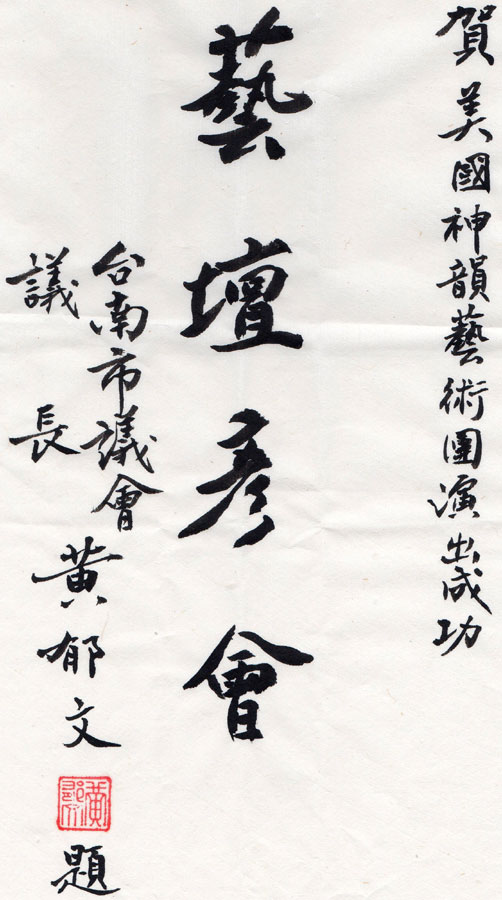 賀美國神韻藝術團演出成功
藝壇彥會
台南市議會
議長
黄郁文題